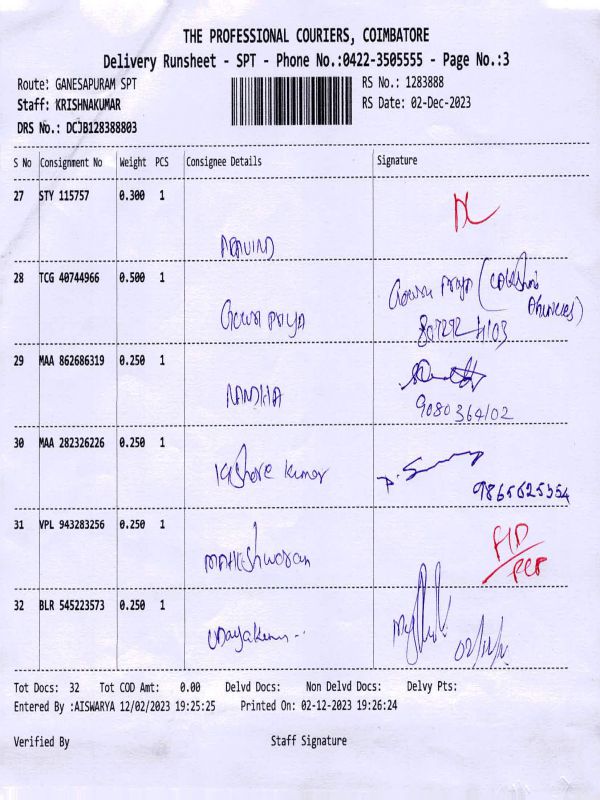 THE PROFESSIONAL COURIERS, COIMBATORE
Delivery Runsheet - SPT - Phone No.:0422-3505555 - Page No.:3
Route: GANESAPURAM SPT RS No.: 1283888
Staff: KRISHNAKUMAR RS Date: 02-Dec-2023
DRS No.: DCJB128388803
S No Consignment No Weight PCS Consignee Details Signature
27 STY 115757 0.300 1
ARAVIND
28 TCG 40744966 0.500 1
Gowri PRIYA Gowri Priya
29 MAA 862686319 0.250 1
NANDHA 9080364102
30 MAA 282326226 0.250 1
Kishore Kumar 9865625354
31 VPL 943283256 0.250 1
MAHESHwaran
32 BLR 545223573 0.250 1
Udayakum..
Tot Docs: 32 Tot COD Amt: 0.00 Delvd Docs: Non Delvd Docs: Delvy Pts:
Entered By :AISWARYA 12/02/2023 19:25:25 Printed On: 02-12-2023 19:26:24
Verified By Staff Signature